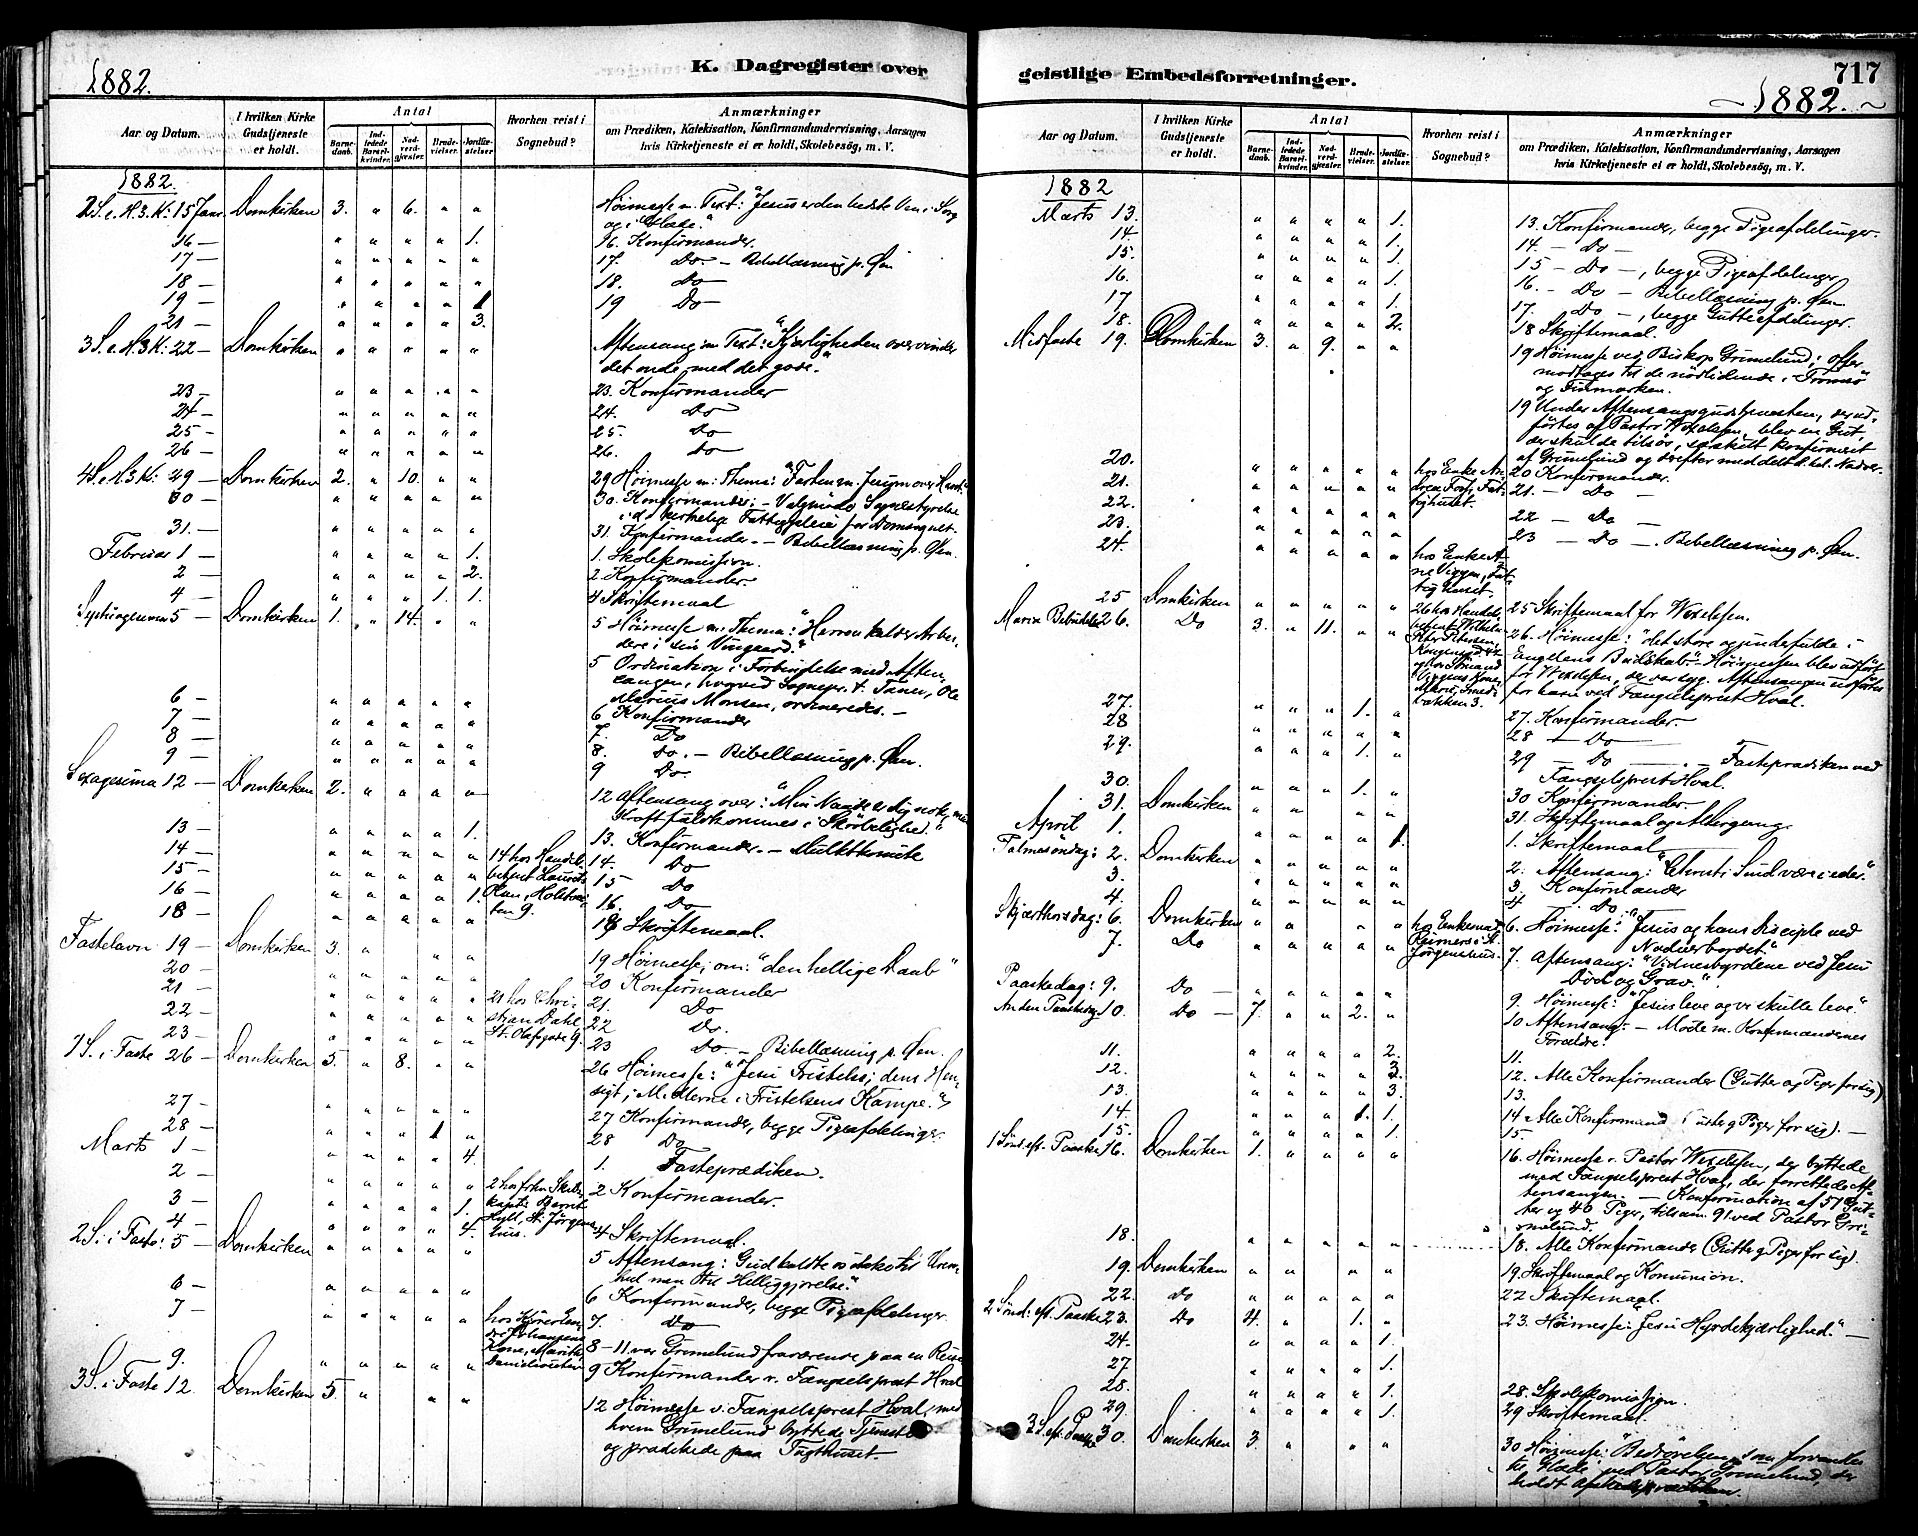 K. Dagregister over
1882.
Aar og Datum.
I hvilken Kirke Gudstjeneste er holdt.
Antal
Barnedaab.
Indledede Barselkvinder.
Nadverdgjester.
Brudevielser.
Jordfæstelser.
Hvorhen reist i Sognebud?
Anmærkninger
om Prædiken, Katekisation, Konfirmandundervisning, Aarsagen
hvis Kirketjeneste ei er holdt, Skolebesøg, m. V.
1882.
2 S. e. H. 3. K: 15 Janr Domkirken 3. " 6. " " Høimesse m. Text: "Jesus er den bedste Ven i Sorg
og i Glæde."
16 — " " " " 1. 16. Konfirmander.
17 — " " " " " 17. Do — Bibellæsning p. Øen
18 — " " " " " 18. Do
19 — " " " " 1 19 Do
21 — " " " " 3.
3 S. e. H. 3 K: 22 — Domkirken " " " " " Aftensang m. Text: "Kjærligheden overvinder
det onde med det gode."
23 — " " " " " 23. Konfirmander
24 — " " " " " 24. Do
25 — " " " " " 25. Do
26 — " " " " " 26. Do
4 S. e. H. 3 K: 29 — Domkirken 2. " 10. " " 29 Høimesse m: Thema:
30 — " " " " " 30. Konfirmander; — Sognestyrelse
i d. kirkelige Fattigpleie for Domsognet.
31. — " " " " " 31. Konfirmander. — Bibellæsning p. Øen.
Februar 1 — " " " " 1. 1. Skolekomission.
2 — " " " " 2. 2 Konfirmander
4 — " " " 1. 1. 4 Skriftemaal
Septuagesima 5 — Domkirken 1. " 14. " " 5 Høimesse m: Thema: "Herren kalder Arbei-
dere i sin Viingaard."
5 Ordination i Forbindelse med Aften-
sangen, hvorved Sognepr. t. Tanen, Ole
Marius Monsen, ordineredes. —
6 — " " " " " 6 Konfirmander
7 — " " " " " 7. Do
8 — " " " " " 8. Do. — Bibellæsning p. Øen.
9 — " " " " " 9 Do
Sexagesima 12 — Domkirken 2. " " " " 12 Aftensang over: "Min Naade er dig nok, min
Kraft fuldkommes i Skrøbelighed."
13 — " " " " 1. 13. Konfirmander. —
14 — " " " " " 14 hos Handels- 14. Do
15 — " " " " " betjent Laurits 15 Do
16 — " " " " 1. Olsen, 16. Do
18 — " " " " " ten 9. 18 Skriftemaal.
Fastelavn 19 — Domkirken 3. " " " 19 Høimesse; om: "den hellige Daab"
20 — " " " " " 20 Konfirmander
21 — " " " " " 21 hos Chri- 21. Do
22 — " " " " " stian Dahl 22 Do.
23 — " " " " " St. Olafsgade 9. 23 Do. — Bibellæsning p. Øen.
1 S. i Faste 26 — Domkirken 5. " 8. " " 26 Høimesse: "Jesu Fristelse; dens Hen-
sigt; Midlerne i Fristelsens Kampe."
27 — " " " " " 27 Konfirmander, begge Pigeafdelinger.
28 — " " " 1 " 28 Do
Marts 1 — " " " " 4. 1. Fasteprædiken.
2 — " " " " " 2 hos fhv. Skibs- 2 Konfirmander.
3 — " " " " 1. kapt:
4 — " " " " 4. Hyll, St: Jørgens- 4 Skriftemaal.
2 S. i Faste: 5 — Domkirken " " " " " hus. 5 Aftensang: Gud kaldte os ikke til Uren-
hed men til Helliggjørelse."
6 — " " " " " 6 Konfirmander, begge Pigeafdelinger
7 — " " " " " hos 7. Do
Johansens 8 — 11. var Grimelund fraværende paa en Reise
9. " " " " " Kone, Marith Danielsdatter 9 Konfirmander v. Fængselsprest Hval
3 S. i Faste 12. Domkirken 5. " " " 12 Høimesse v. Fængselsprest Hval, med
hvem Grimelund byttede Tjeneste
og prædikede paa Tugthuset.
geistlige Embedsforretninger.
717
1882.
Aar og Datum.
I hvilken Kirke Gudstjeneste er holdt.
Antal
Barnedaab.
Indledede Barselkvinder.
Nadverdgjester.
Brudevielser.
Jordfæstelser.
Hvorhen reist i Sognebud?
Anmærkninger
om Prædiken, Katekisation, Konfirmandundervisning, Aarsagen
hvis Kirketjeneste ei er holdt, Skolebesøg, m. V.
1882
Marts 13. " " " " 1. 13. Konfirmander, begge Pigeafdelinger.
14. " " " " 1. 14. — Do —
15. " " " " 1. 15 — Do —, begge Pigeafdelinger
16. " " " " 1. 16. — Do — Bibellæsning p. Øen
17 " " " " 1. 17. Do —, begge Gutteafdelinger.
18. " " " " 2. 18 Skriftemaal.
Midfaste 19. Domkirken 3. " 9. " " 19 Høimesse ved Biskop Grimelund; Offer
modtages til de nødlidende i Tromsø
og Finmarken.
19 Under Aftensangsgudstjenesten, der ud-
førtes af Pastor Wexelsen, blev en Gut,
der skulde tilsøs, særskilt konfirmeret
af Grimelund og derefter meddelt d. hel. Nadver.
20. " " " " " hos Enke An- 20 Konfirmander.
21. " " " " " drea Foss, Fat- 21. — Do —
22. " " " " " tighuset. 22 — Do —
23. " " " " " 23 — Do —. Bibellæsning p. Øen.
24. " " " " " hos Enke A-
ne Viggen, Fat-
tighuset.
25 Domkirken " " " " " 25 Skriftemaal for Wexelsen.
Mariæ Bebudelse 26. Do 3. " 11. " " 26 hos Handels-
betjent Wilhelm
Peter Petersen,
26. Høimesse: "det store og underfulde i
Engelens Budskab." — Høimessen blev udført
for Wexelsen, der var syg. Aftensangen udførtes
for ham ved Fængselsprest Hval.
27. " " " 1. " 27. Konfirmander. —
28 " " " " " 28 — Do
29. " " " 1. " 29 Do —. — Fasteprædiken ved
Fængselsprest Hval.
30. " " " 1. " 30 Konfirmander.
31. Domkirken " " " " " 31. Skriftemaal og Altergang.
April 1. " " " " 1. 1. Skriftemaal
Palmesøndag: 2. Domkirken " " " " " 2. Aftensang: "Christi Sind være i eder."
3. " " " " " 3. Konfirmander
4. " " " " " 4 — Do —
Skjærthorsdag: 6. Domkirken " " " " hos Enkemad. 6. Høimesse: "Jesus og hans Disciple ved
Nadverbordet."
7. Do " " " " " Reimers i St. Jørgenshus. 7. Aftensang: "Vidnesbyrdene ved Jesu
Død og Grav."
Paaskedag: 9. Do — " " " " " 9. Høimesse: "Jesus leve og vi skulle leve."
Anden Paaskedag 10. Do — 7. " " 2. " 10 Aftensang. — Møde m. Konfirmandernes
Forældre.
11. " " " " 2. 11.
12. " " " " 3. 12. Alle Konfirmander (Gutter og Piger for sig)
13. " " " " 3. 13.
14. " " " 1. 1. 14 Alle Konfirmand (Gutter og Piger for sig). —
15. " " " " 1. 15.
1 Sønd. eft. Paaske 16. Domkirken 1. " " " " 16. Høimesse v. Pastor Wexelsen, der byttede
med Fængselsprest Hval, der forrettede Af-
tensangen. — Konfirmation af 51 Gut-
ter og 40 Piger, tilsam. 91 ved Pastor Gri-
melund.
18. " " " " " 18. Alle Konfirmander (Gutter og Piger for sig).
19. Domkirken " " " " 19. Skriftemaal og Komunion.
22. Do " " " " " 22 Skriftemaal.
2 Sønd. eft. Paaske 23. Do 4. " 1. " 23. Høimesse: Jesu Hyrdekjærlighed." —
24. " " " " 1.
27 " " " " 1.
28. " " " " 1. 28. Skolekomission.
29 " " " " 1. 29 Skriftemaal.
3 S. eft. Paaske 30. Domkirken 3. " " " 30 Høimesse: "Bedrøvelsen som forvandles
til Glæde, ved Pastor Grimelund, der
holdt Afskedsprædiken.